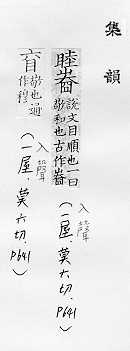 集韻
睦𡍬 說文目順也一曰敬和也古作𡍬
入聲
(一屋,莫六切,P641
𥄕 敬也通作穆
入聲
(一屋,莫六切,P641